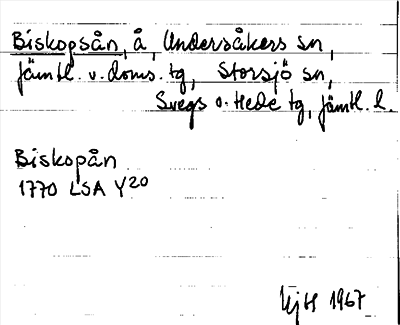 Biskopsån, å, Undersåkers sn,
Jämtl. v. doms. tg, Storsjö sn,
Svegs o. Hede tg, Jämtl. l.
Biskopån
1770 LSA Y20
HjH 1967